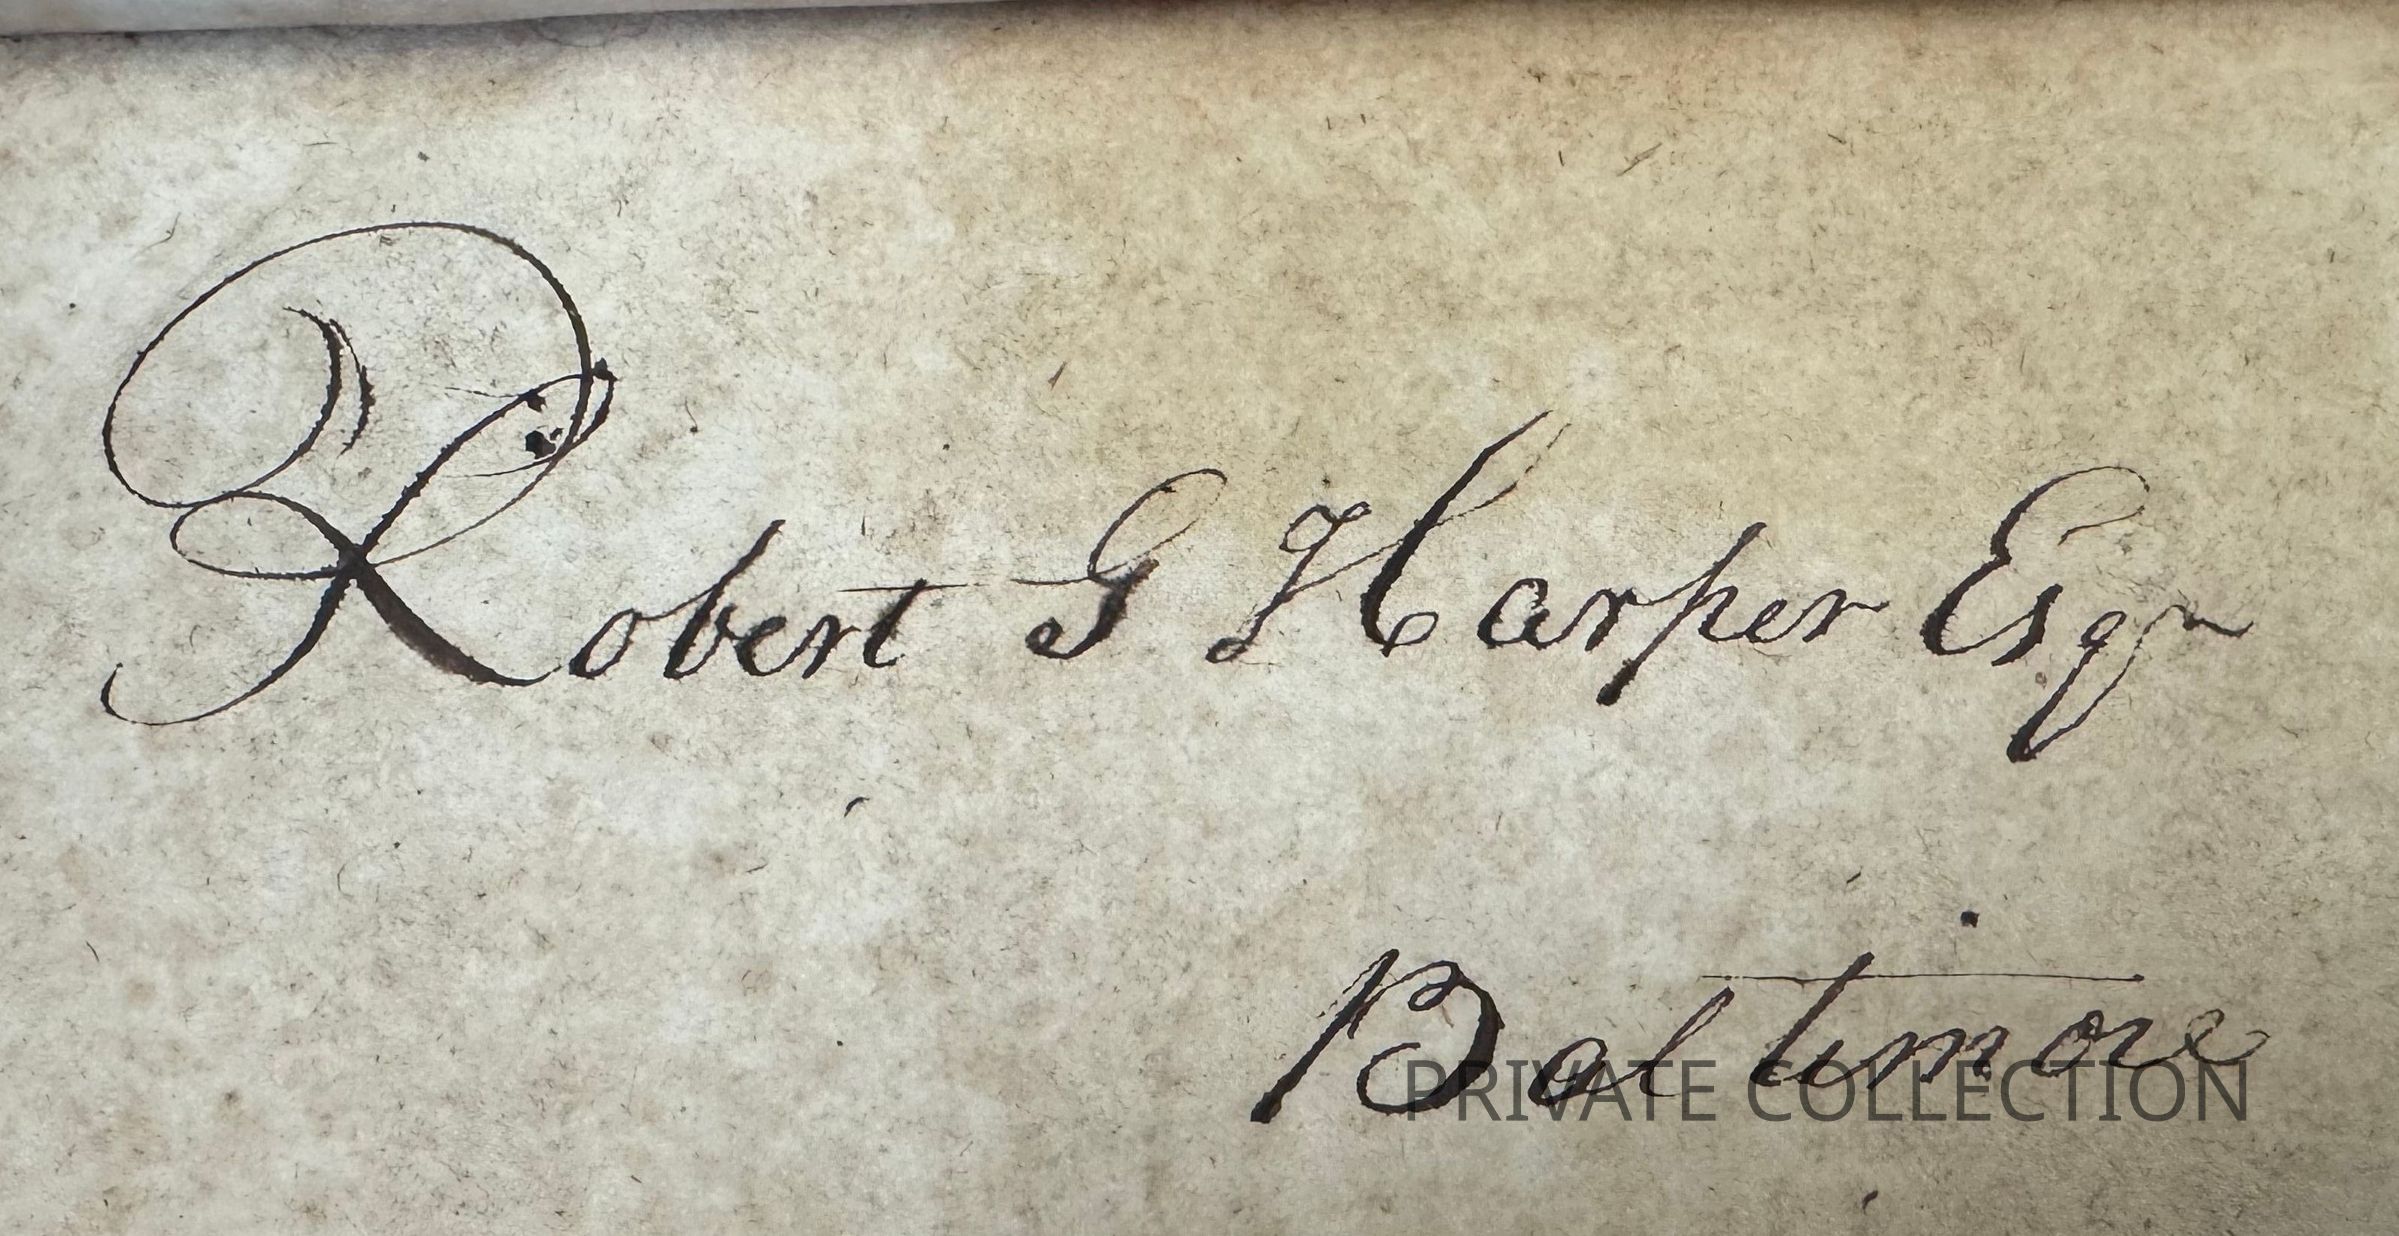 Robert G Harper Esqr
Baltimore
PRIVATE COLLECTION